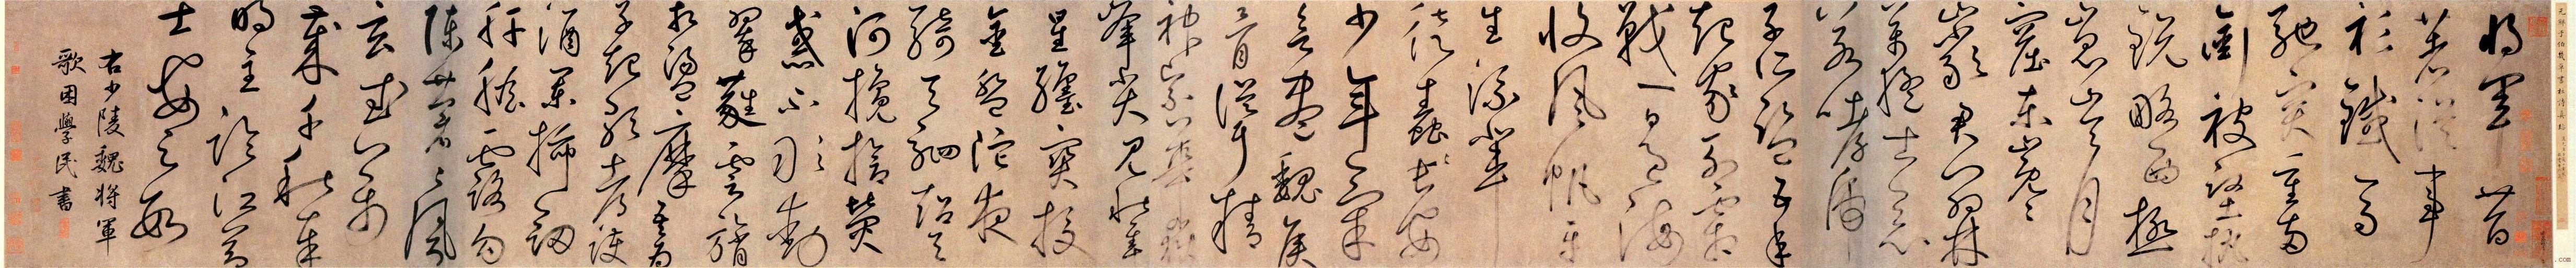 將軍昔
著從事
衫鐵馬
馳突重兩
銜被堅執
銳略西極
崑崙月
窟東嶄
巖君門羽林
萬猛士惡
若哮虎
子所監五年
起家列霜
戟一日過海
收風帆平
生流輩
徒蠢〻長安
少年氣
欲盡魏侯
骨聳精
華嶽
峯尖見秋隼
星纏寶校
金盤陀夜
騎天駟超天
河欃槍熒
惑不敢動
翠蕤雲旓
相蕩摩吾為
子起歌都護
酒闌插劍
肝膽露鉤
陳蒼〻風
玄武萬
歲千秋奉
明主臨江節
士安足數
右少陵魏將軍
歌困學民書